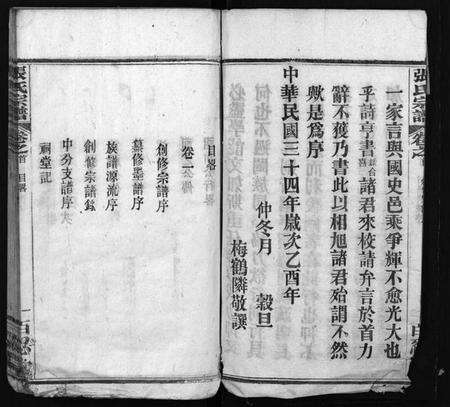 張氏宗譜
一家言與國史邑乘爭輝不愈光大也
乎詩亨書諸君來校請弁言於首力
辭不獲乃書此以相旭諸君殆謂不然
歟是為序
中華民國三十四年歲次乙酉年
仲冬月 穀旦
梅鶴隣敬譔
目畧
卷一
創修宗譜序
纂修墨譜序
族譜源流序
創修宗譜錄
中分支譜序
祠堂記
張氏宗譜
卷之首 目畧
一百忍堂